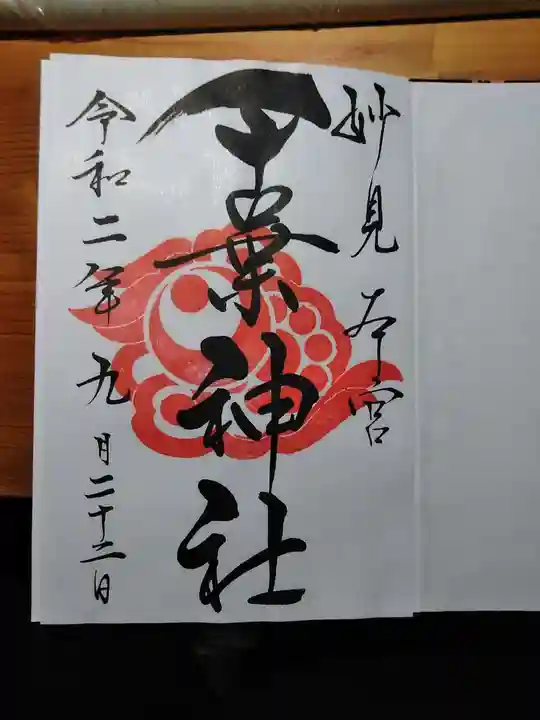 妙見本宮
千葉神社
令和二年九月二十二日